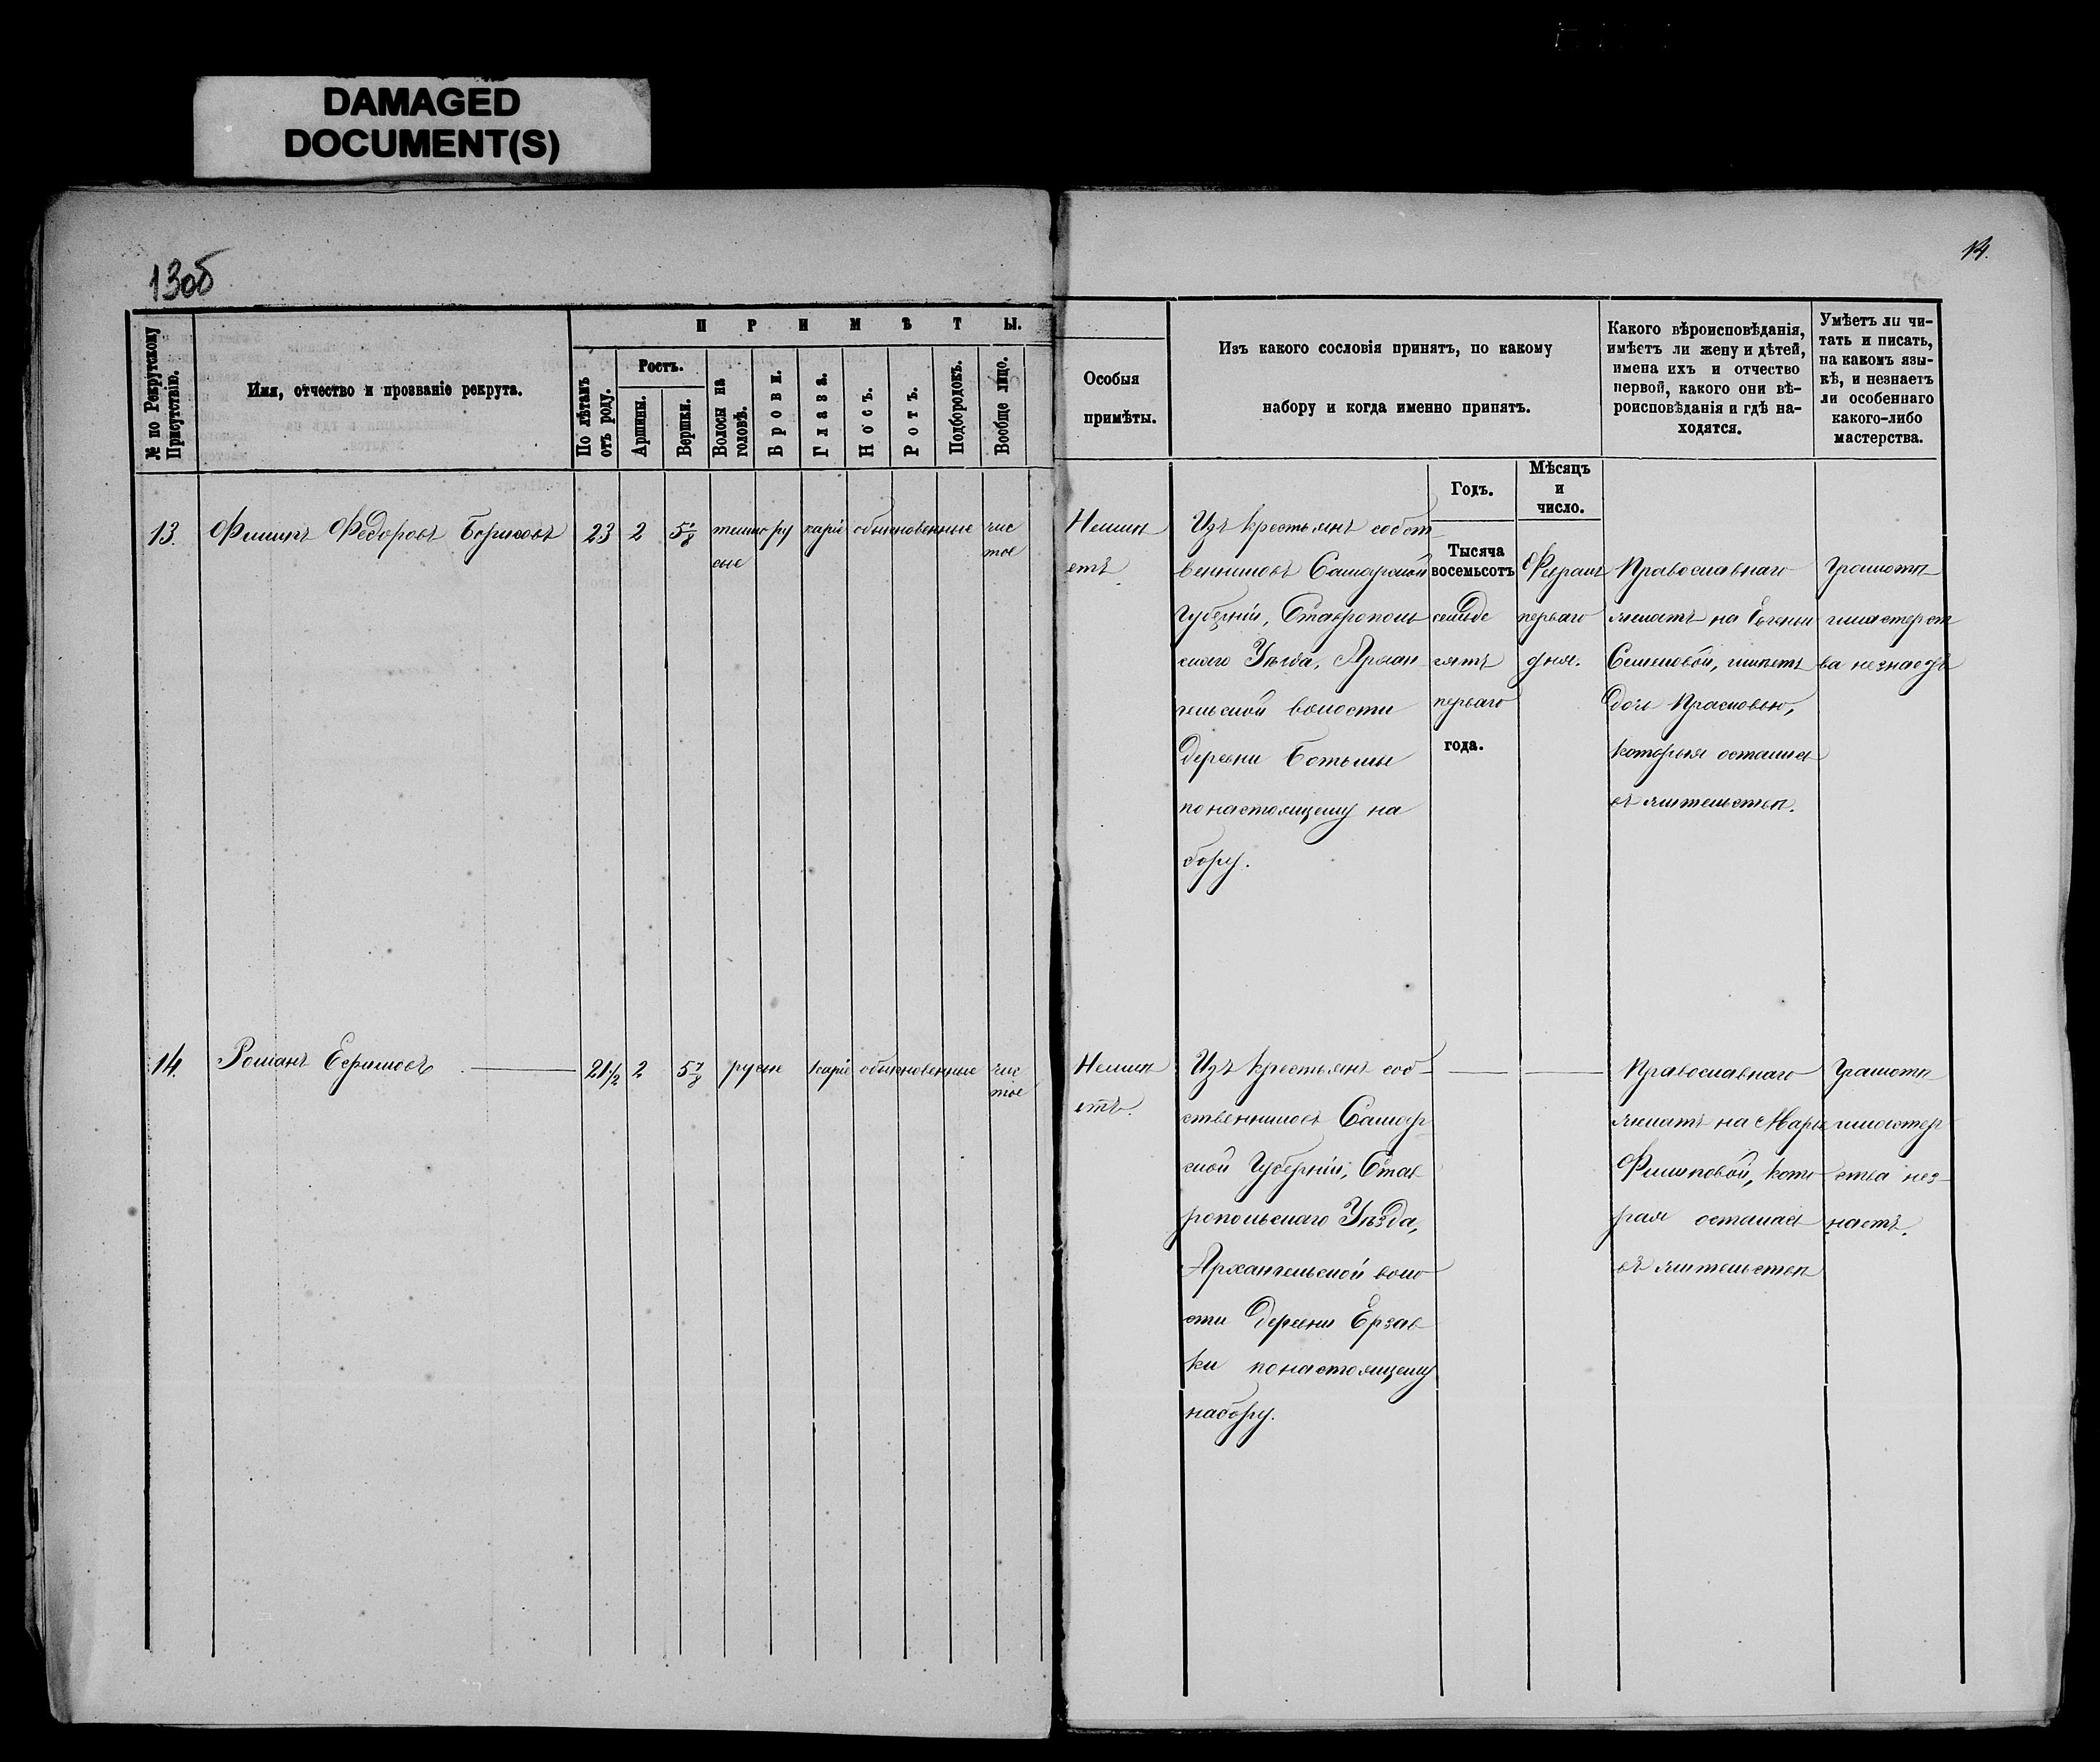 DAMAGED
DOCUMENT(S)
13об
14.
№ по Рекрутскому Присутствію.
Имя, отчество и прозваніе рекрута.
ПРИМѢТЫ.
По лѣтамъ отъ роду.
Ростъ.
Аршины.
Вершки.
Волосы на головѣ.
Брови.
Глаза.
Носъ.
Ротъ.
Подбородокъ.
Вообще лицо.
Особыя
примѣты.
Изъ какого сословія принятъ, по какому
набору и когда именно принятъ.
Какого вѣроисповѣданія,
имѣетъ ли жену и дѣтей,
имена ихъ и отчество
первой, какого они вѣ-
роисповѣданія и гдѣ на-
ходятся.
Умѣетъ ли чи-
тать и писать,
на какомъ язы-
кѣ, и незнаетъ
ли особеннаго
какого-либо
мастерства.
Годъ.
Мѣсяцъ
и
число.
13. Филипъ Федоровъ Борисовъ 23 2 темнору карiе обыкновенные чис
сые тое
Неимѣ
етъ.
Изъ крестьянъ собст
венниковъ Самарской
Губерніи, Ставрополь
скаго Уѣзда, Архан
гельской волости
деревни Ботьмы
по настоящему на
бору.
Тысяча
восемьсотъ
семьде
сятъ
перваго
года.
перваго
дня.
Православнаго
женатъ на
Семеновой, имѣетъ
дочь Прасковью,
которыя остались
въ жительствѣ.
Грамоты
и мастерст
ва незнаетъ
14. Романъ Ефимовъ 21 1/2 2 5 7/8 русые карiе обыкновенные чис
тое
Неимѣ
етъ.
Изъ крестьянъ соб
ственниковъ Самар
ской Губерніи, Став
ропольскаго Уѣзда,
Архангельской воло
сти деревни Ерзав
ки по настоящему
набору.
Православнаго
женатъ на Марье
Филиповой, кото
рая осталась
въ жительствѣ
Грамоты
и мастер
ства нез
наетъ.